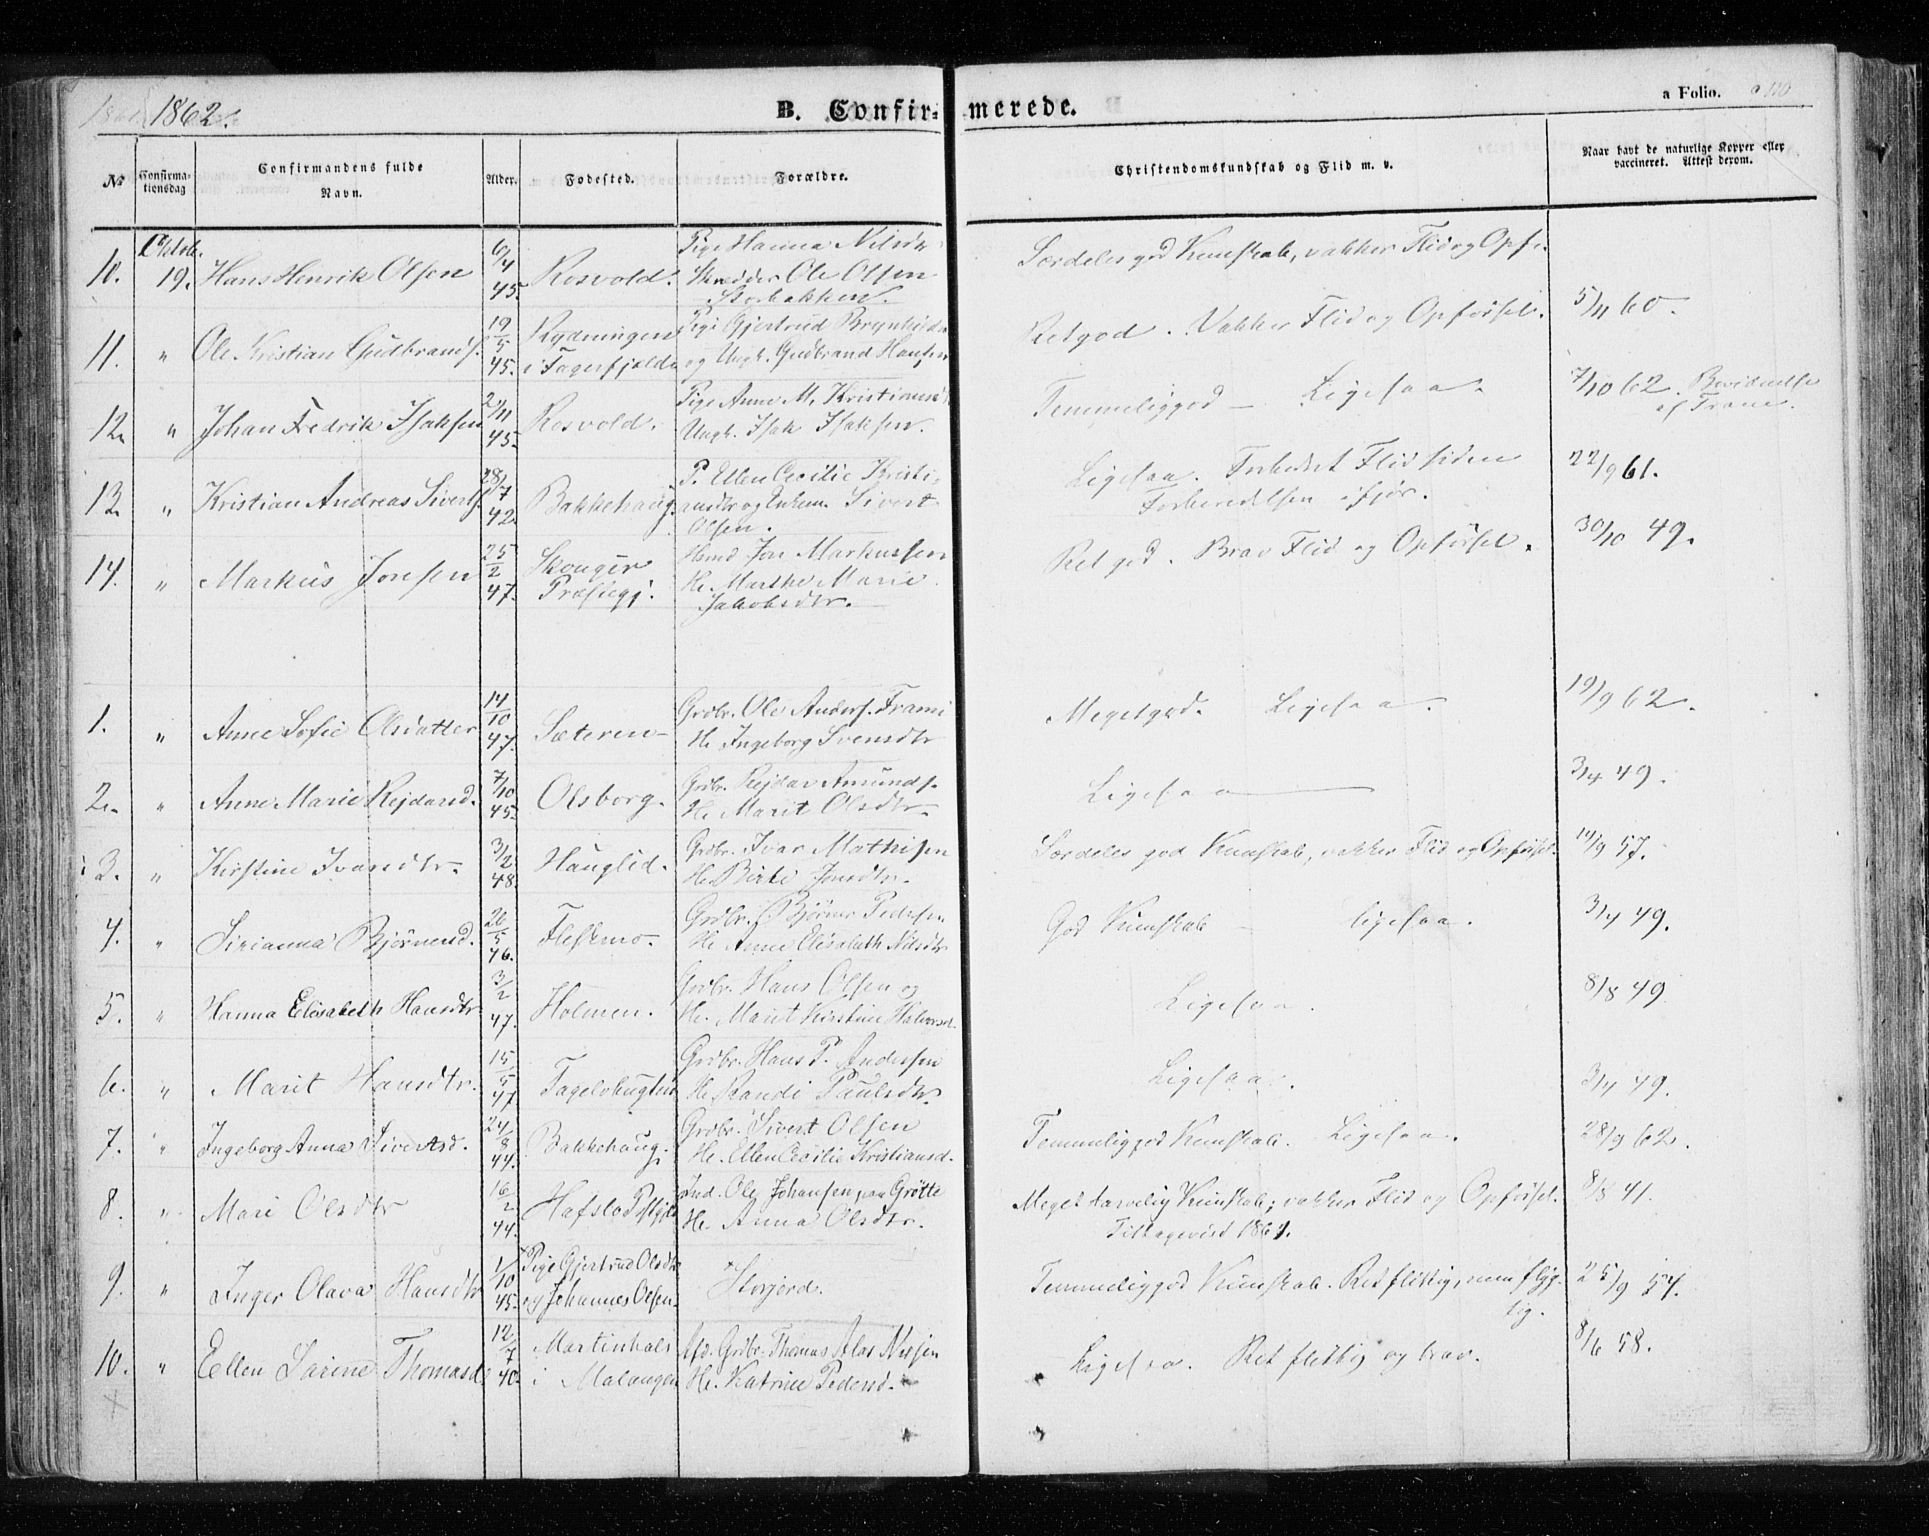 1862.
B. Confirmerede.
a Folio.
№
Confirmationsdag
Confirmandens fulde Navn.
Alder.
Fødested.
Forældre.
Christendomskundskab og Flid m. v.
Naar havt de naturlige Kopper eller vaccineret. Attest derom.
10. Oktob. 19. Hans Henrik Olsen 6/4 45. Rosvold. Pige Hanna Nilsdtr Skrædder Ole Olsen Storbakken. Særdeles god Kunskab, vakker Flid og Opf.
11. " Ole Kristian Gudbrands. 19/5 45. Rydningen i Fagerfjeld Pige Gjertrud Brynhilds og Ungk. Gudbrand Hansen Retgod. Vakker Flid og Opførsel. 5/11 60.
12. " Johan Fredrik Isaksen 2/11 45. Rosvold. Pige Anne M. Kristiansd Ungk. Isak Isaksen. Temmeliggod — Ligesaa. 7/10 62. Bevidnelse af Trane.
13. " Kristian Andreas Siverts. 28/7 42. Bakkehaug. P. Ellen Cecilie Kristiansdtr og Enkem. Sivert Olsen. Ligesaa. Forbedret Flid siden Forberedelsen ifjor. 22/9 61.
14. " Markus Jonsen 25/2 47. Skouger Præstegj. Hmd Jon Markussen He. Marthe Marie Jakobsdtr. Ret god. Brav Flid og Opførsel. 30/10 49.
1. " Anne Sofie Olsdatter 14/10 47. Sæteren Grdbr. Ole Anders. Frami He Ingeborg Svensdtr Megetgod. Ligesaa. 19/9 62.
2. " Anne Marie Rejdarsd. 7/10 45. Olsborg. Grdbr. Rejdar Amunds. He Marit Olsdtr. Ligesaa 3/4 49.
3. " Kirstine Ivarsdtr. 3/2 48. Hauglid. Grdbr. Ivar Mathisen He. Birte Jonsdtr. Særdeles god Kunskab, vakker Flid og Opførsel. 14/9 57.
4. " Sirianna Bjørnersd. 26/5 46. Fleskmo. Grdbr. Bjørner Pedersen He Anne Elisabeth Nilsdtr God Kunskab — ligesaa. 3/4 49.
5. " Hanna Elisabeth Hansdtr. 3/2 47. Holmen. Grdbr. Hans Olsen og He. Marit Kirstine Halvorsd. Ligesaa. 8/8 49
6. " Marit Hansdtr. 15/5 47 Fagelvbugten Grdbr. Hans P. Andersen He Randi Paulsdtr. Ligesaa. 3/4 49.
7. " Ingeborg Anna Sivertsd. 24/8 44. Bakkehaug. Grdbr. Sivert Olsen He. Ellen Cecilie Kristiansd. Temmeliggod Kunskab. Ligesaa. 28/9 62.
8. " Mari Olsdtr 16/2 44. Hafslo Ind. Ole Johansen paa Grøtte He. Anna Olsdtr. Meget tarvelig Kunskab; vakker Flid og Opførsel. Tilbagevist 1861. 8/8 41.
9. " Inger Olava Hansdtr 1/10 45. Pige Gjertrud Olsdtr og Johannes Olsen. Storjord. Temmeliggod Kunskab. Ret flittig, men flygtig. 25/9 54.
10. " Ellen Sarine Thomasd. 12/7 40. Martinhals i Malangen Afd. Grdbr. Thomas Alas Nissen He. Katrine Pedersd. Ligesaa. Ret flittig og brav. 8/6 58.